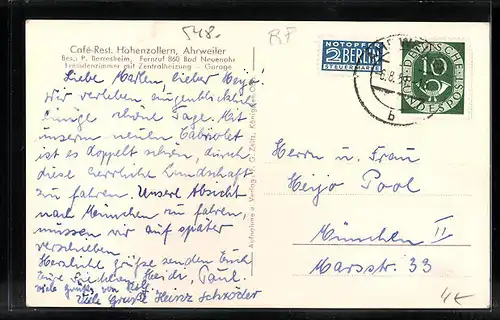 548.-
RF
Café-Rest. Hohenzollern, Ahrweiler
Bes.: P. Berresheim, Fernruf 860 Bad Neuenahr
Fremdenzimmer mit Zentralheizung - Garage
Liebe Marlen, lieber Heijo!
Wir verleben augenblicklich
einige schöne Tage. Mit
unserem neuen Cabriolet
ist es doppelt schön, durch
diese herrliche Landschaft
zu fahren. Unsere Absicht
nach München zu fahren,
müssen wir auf später
verschieben.
Herzliche Grüße senden Euch
Heidi, Paul.
viele Grüße von
Viele Grüße Heinz Schröder
Aufnahme u. Verlag
NOTOPFER
2 BERLIN
STEUERMARKE
b
DEUTSCHE
10
BUNDESPOST
Herrn u. Frau
Heijo Pool
München II
Marsstr. 33
4€